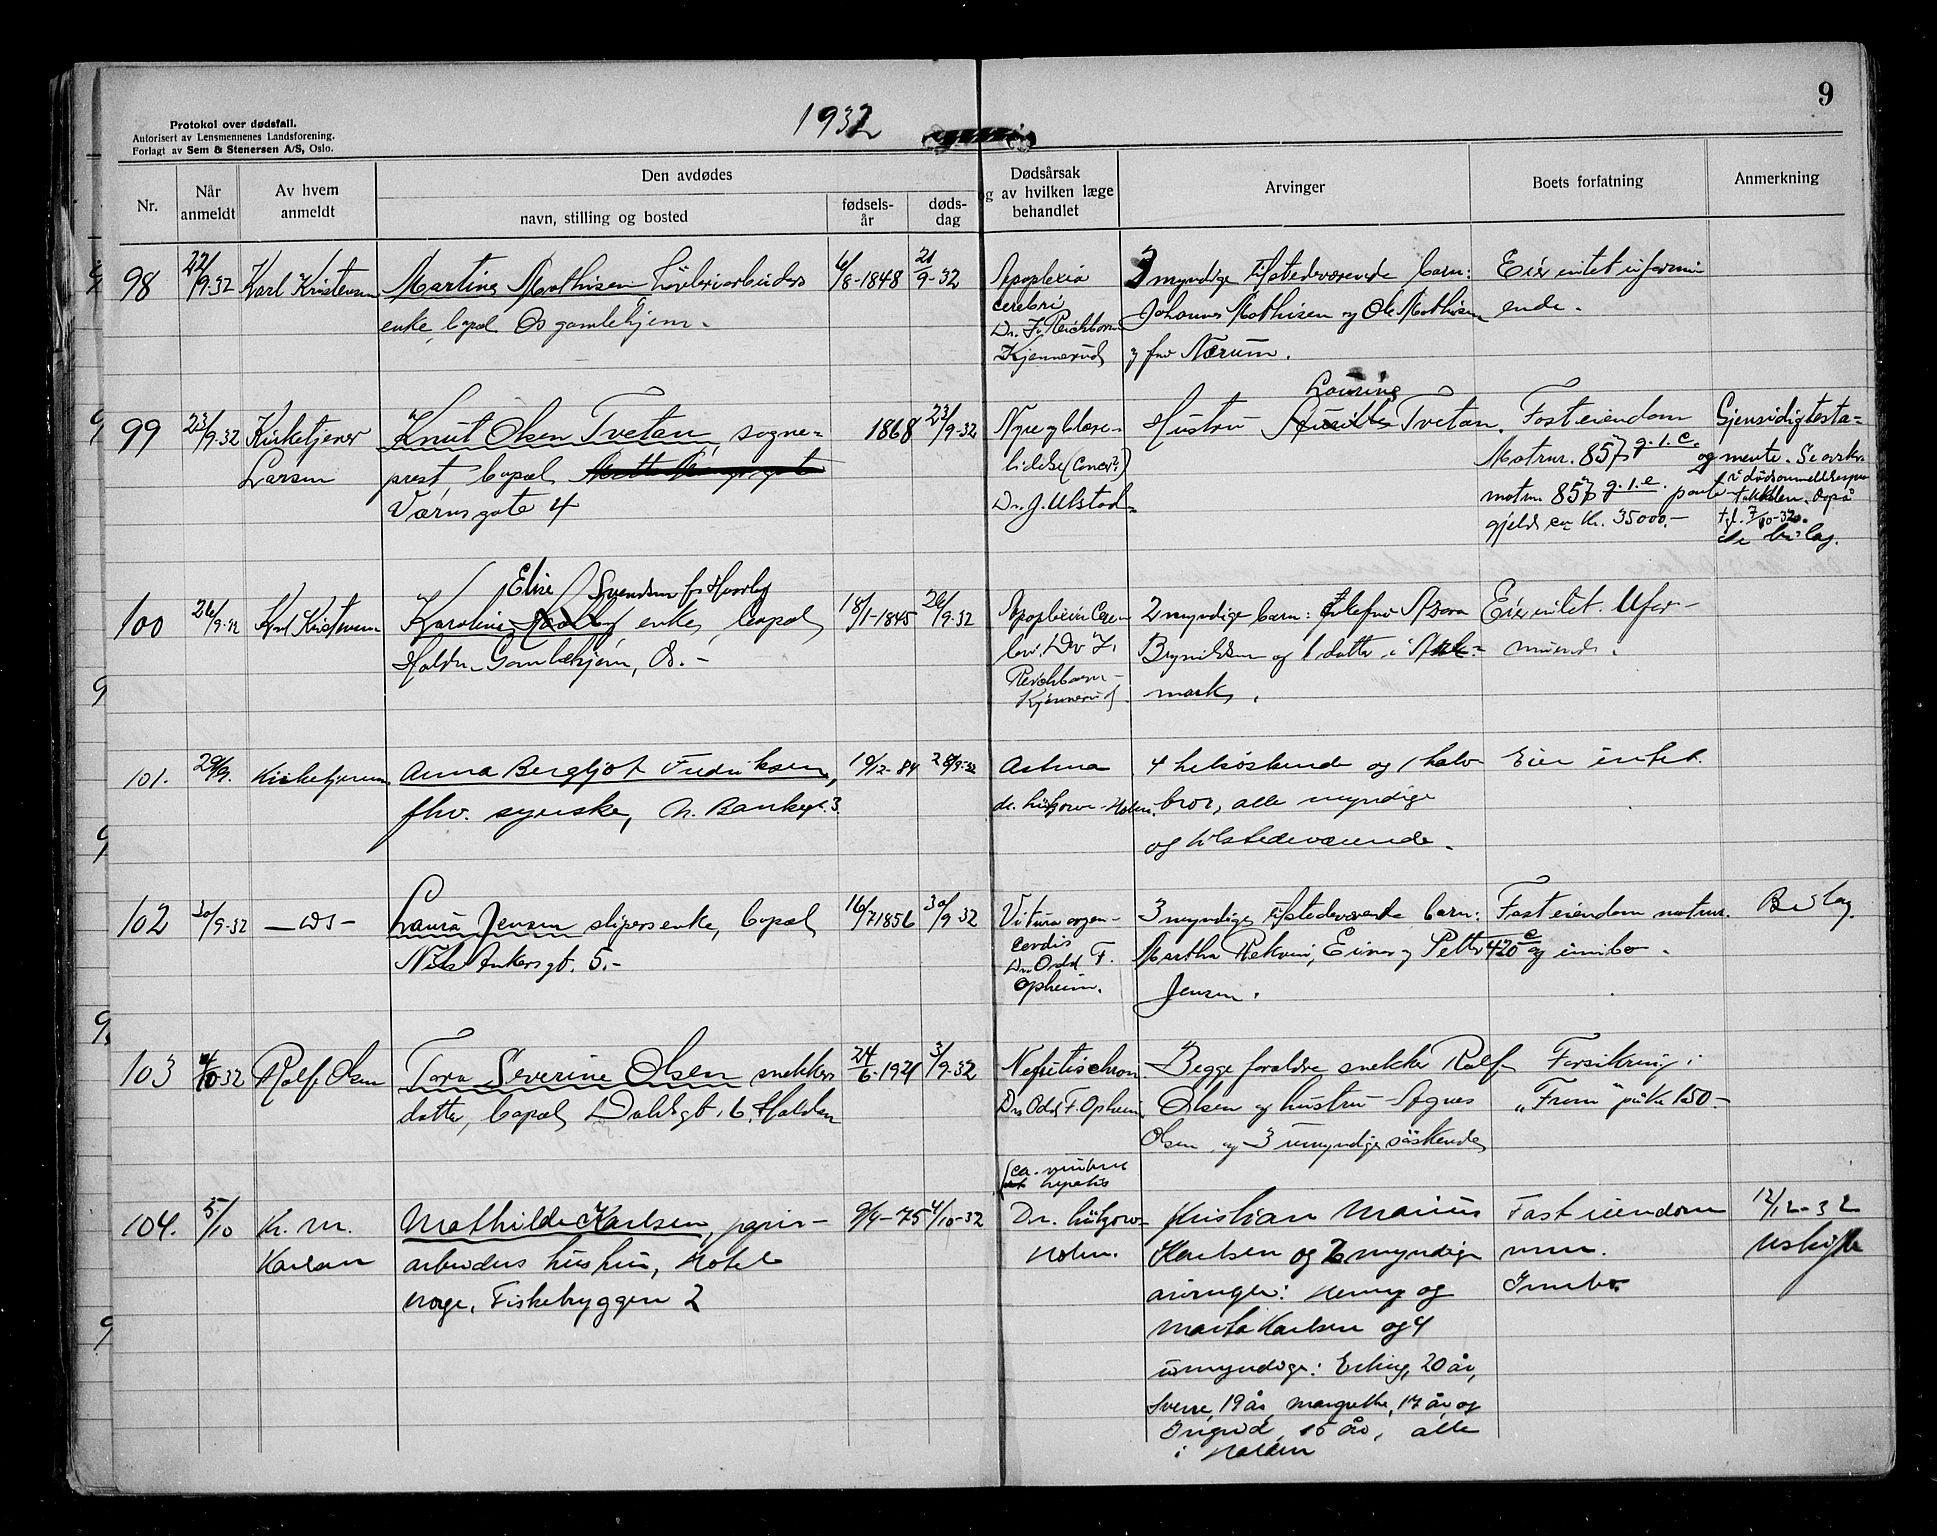 9
1932
Protokol over dødsfall.
Autorisert av Lensmennenes Landsforening.
Forlagt av Sem & Stenersen A/S, Oslo.
Nr.
Når
anmeldt
Av hvem
anmeldt
Den avdødes
navn, stilling og bosted
fødsels-
år
døds-
dag
Dødsårsak
og av hvilken læge
behandlet
Arvinger
Boets forfatning
Anmerkning
98
22/9-32
Karl Kristensen
Martine Mathisen høvleriarbeiders
enke, bopæl Os gamlehjem.
6/8-1848
21/9-32
Apoplexia
cerebri
Dr. Fr. Reichborn
Kjennerud
3 myndige tilstedeværende barn:
Johannes Mathisen og Ole Mathisen
og fru Nærum.
Eier intet uformu-
ende.
99
23/9-32
Kirketjener
Larsen
Knut Olsen Tvetan, sogne-
prest, bopæl
Værnsgate 4
1868
23/9-32
Nyre og blære-
lidelse (Cancer?)
Dr. J. Ulstad.
Lovise
Hustru Tvetan.
Fast eiendom
Matrnr. 857 g.1.c. og
matrnr 857 g.1.e. pante-
gjeld ca kr. 35000.-
Gjensidig testa-
mente. Se avskr.
i dødsanmeldelsespro-
tokollen. Også
tgl. 7/10-32.
se bilag.
100
26/9-32
Karl Kristensen
Elise Svendsen f. Haaby
Karoline enke, bopæl
Halden Gamlehjem, Os.-
18/1-1845
26/9-32
Apoplexia Cere-
bri. Dr. F.
Reichborn-
Kjennerud.
2 myndige barn: Enkefru Thora
Brynildsen og 1 datter i
mark.
Eier intet. Ufor-
muende.
101.
29/9.
Kirketjeneren
Anna Bergljot Fredriksen,
fhv. syerske, N. Bankegt. 3.
19/12-84
28/9-32
Astma
dr. Lützow-Holm.
4 helsøskende og 1 halv-
bror, alle myndige
og tilstedeværende.
Eier intet.
102
30/9-32
— do —
Laura Jensen slipers enke, bopæl
Nils Ankersgt. 5.-
16/7 1856
30/9 32
Vitium organ-
cordis
Dr. Odd F.
Opheim.
3 myndige tilstedeværende barn:
Martha Rekvin, Einar og Petter
Jensen.
Fast eiendom matrnr.
420 c og innbo.
Bilag.
103
4/10-32
Rolf Olsen
Tora Severine Olsen snekkers
datter, bopæl Dahlsgt. 6 Halden
24/6-1921
3/9-32
Nefritis chron.
Dr. Odd F. Opheim
Begge foreldre snekker Rolf
Olsen og hustru Agnes
Olsen, og 3 umyndige søskende
Forsikring i
„Frem" på kr 150.-
104.
5/10
Kr. M.
Karlsen
Mathilde Karlsen, papir-
arbeiders hustru, Hotel
Norge, Fiskebryggen 2
9/4-75
4/10-32
hepatis
Dr. Lützow-
Holm.
Kristian Marius
Karlsen og 2 myndige
arvinger: Henny og
Marta Karlsen og 4
umyndige: Erling, 20 år,
Sverre, 19 år, Margrethe, 17 år og
Ingrid, 15 år, alle
i Halden
Fast eiendom
mm.
Innbo.
12/12-32
Uskifte